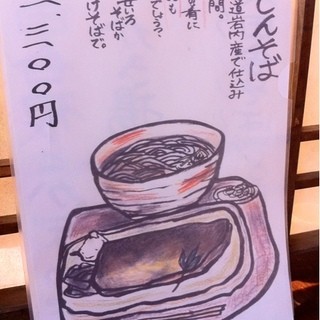 しんそば
道岩内産で仕込み
間。
肴に
も
でしょう、
せいろ
そばか
けそばで。
一、三〇〇円